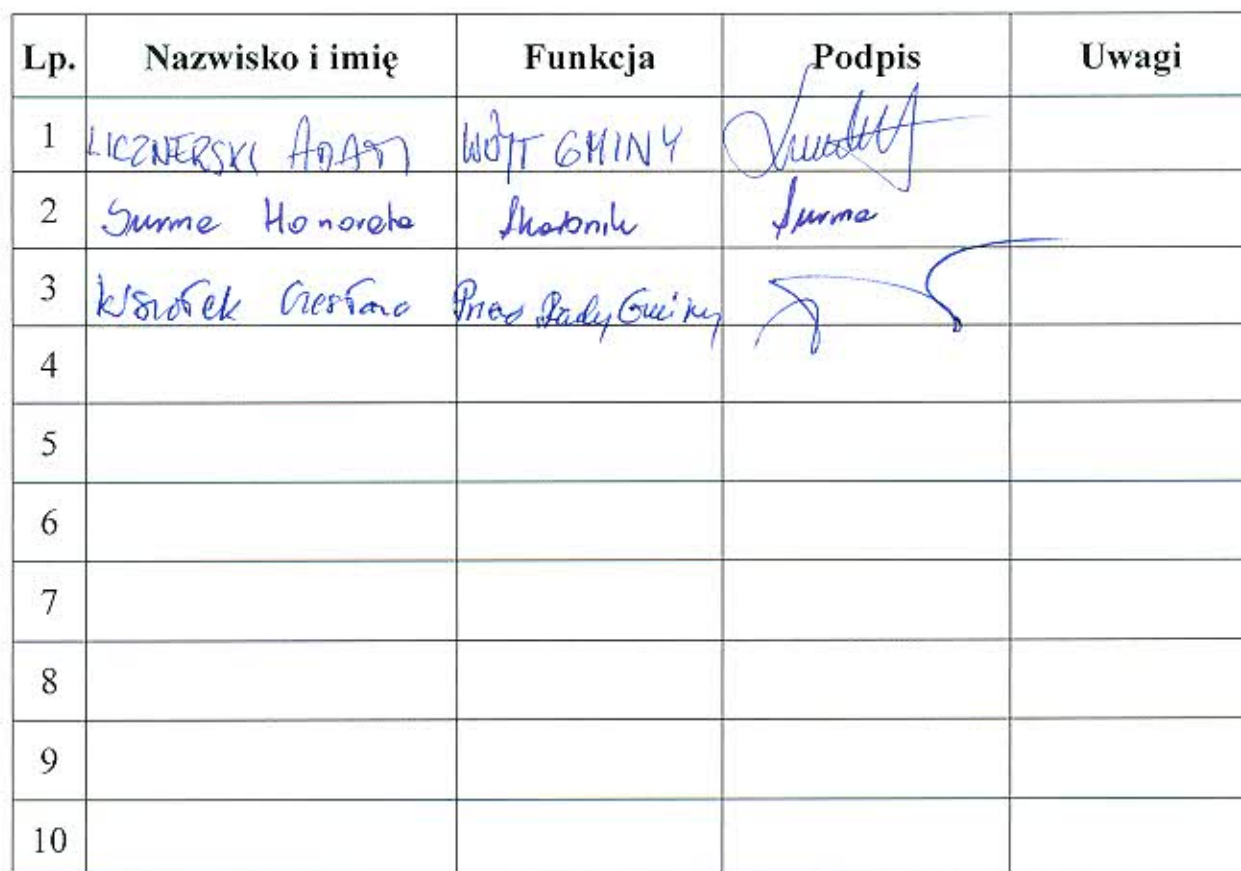 Lp. Nazwisko i imię Funkcja Podpis Uwagi
1 LICZNERSKI ADAM WÓJT GMINY
2 Surma Honorata Skarbnik Surma
3 Rady Gminy
4
5
6
7
8
9
10